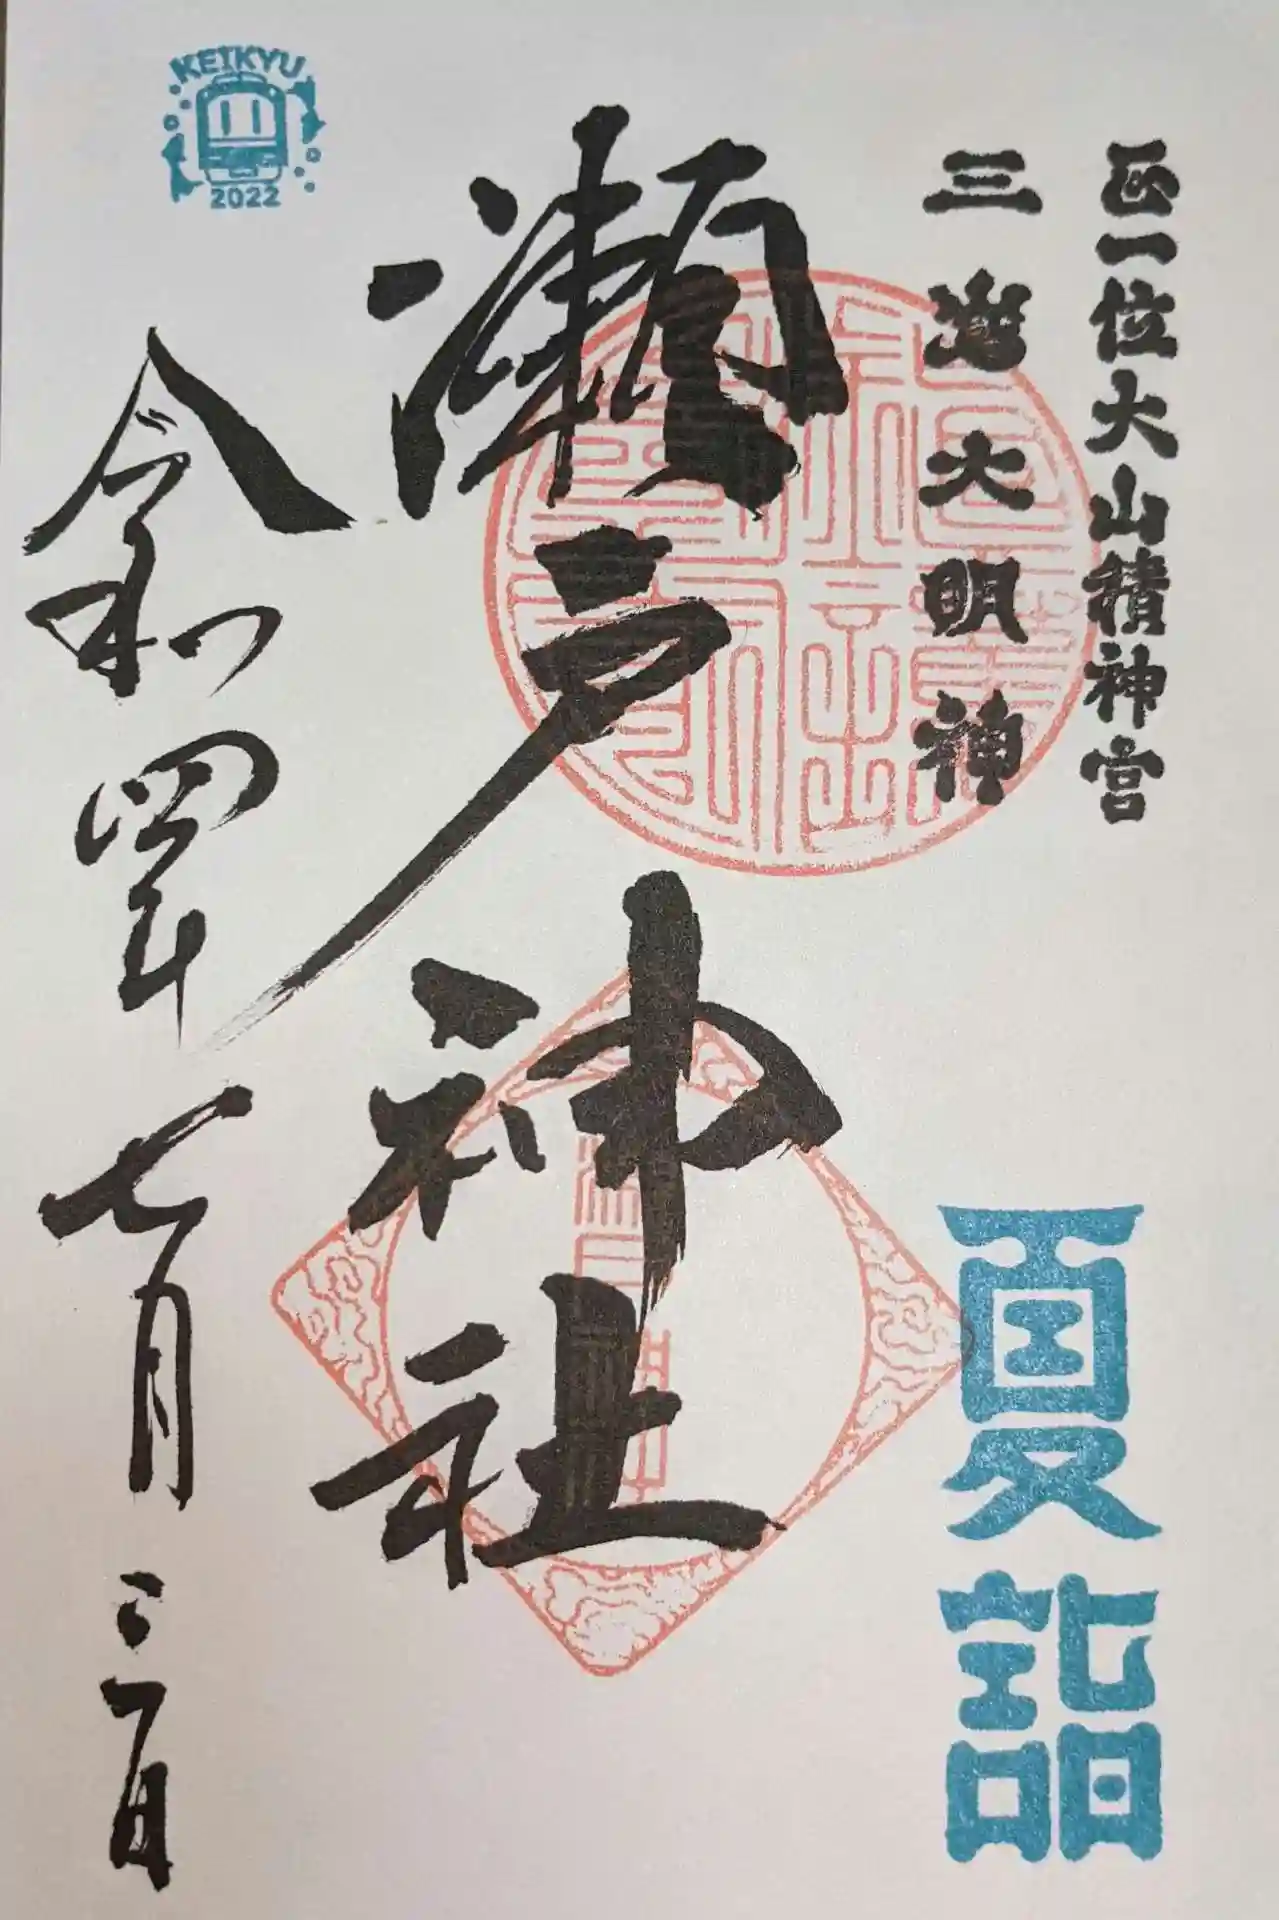 正一位大山積神宮
三島大明神
夏詣
瀬戸神社
令和四年七月三日
KEIKYU
2022